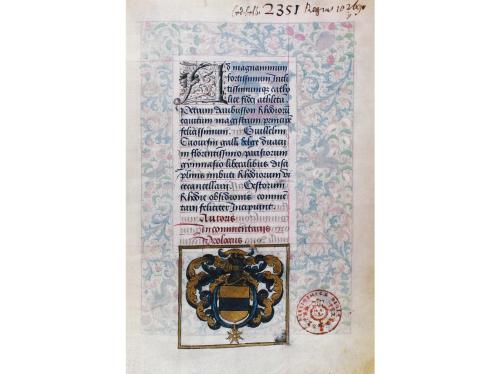 Cod. Colb. 2351 Regius 10269
Ad magnanimum
fortissimum Incli
tissimumqꝫ catho
lice fidei athleta
Petrum Aubusson Rhodioꝝ
equitum magistrum principē
felicissimum. Guillelmi
Caoursin galli belge duacei
in florentissimo parisiorum
gymnasio liberalibus disci
plinis imbuti Rhodiorum vi
cecancellarii. Gestorum
Rhodie obsidionis commē
tarii feliciter Incipiunt.
Autoris
in commentariis
Prologus
BIBLIOTHECA REGIA